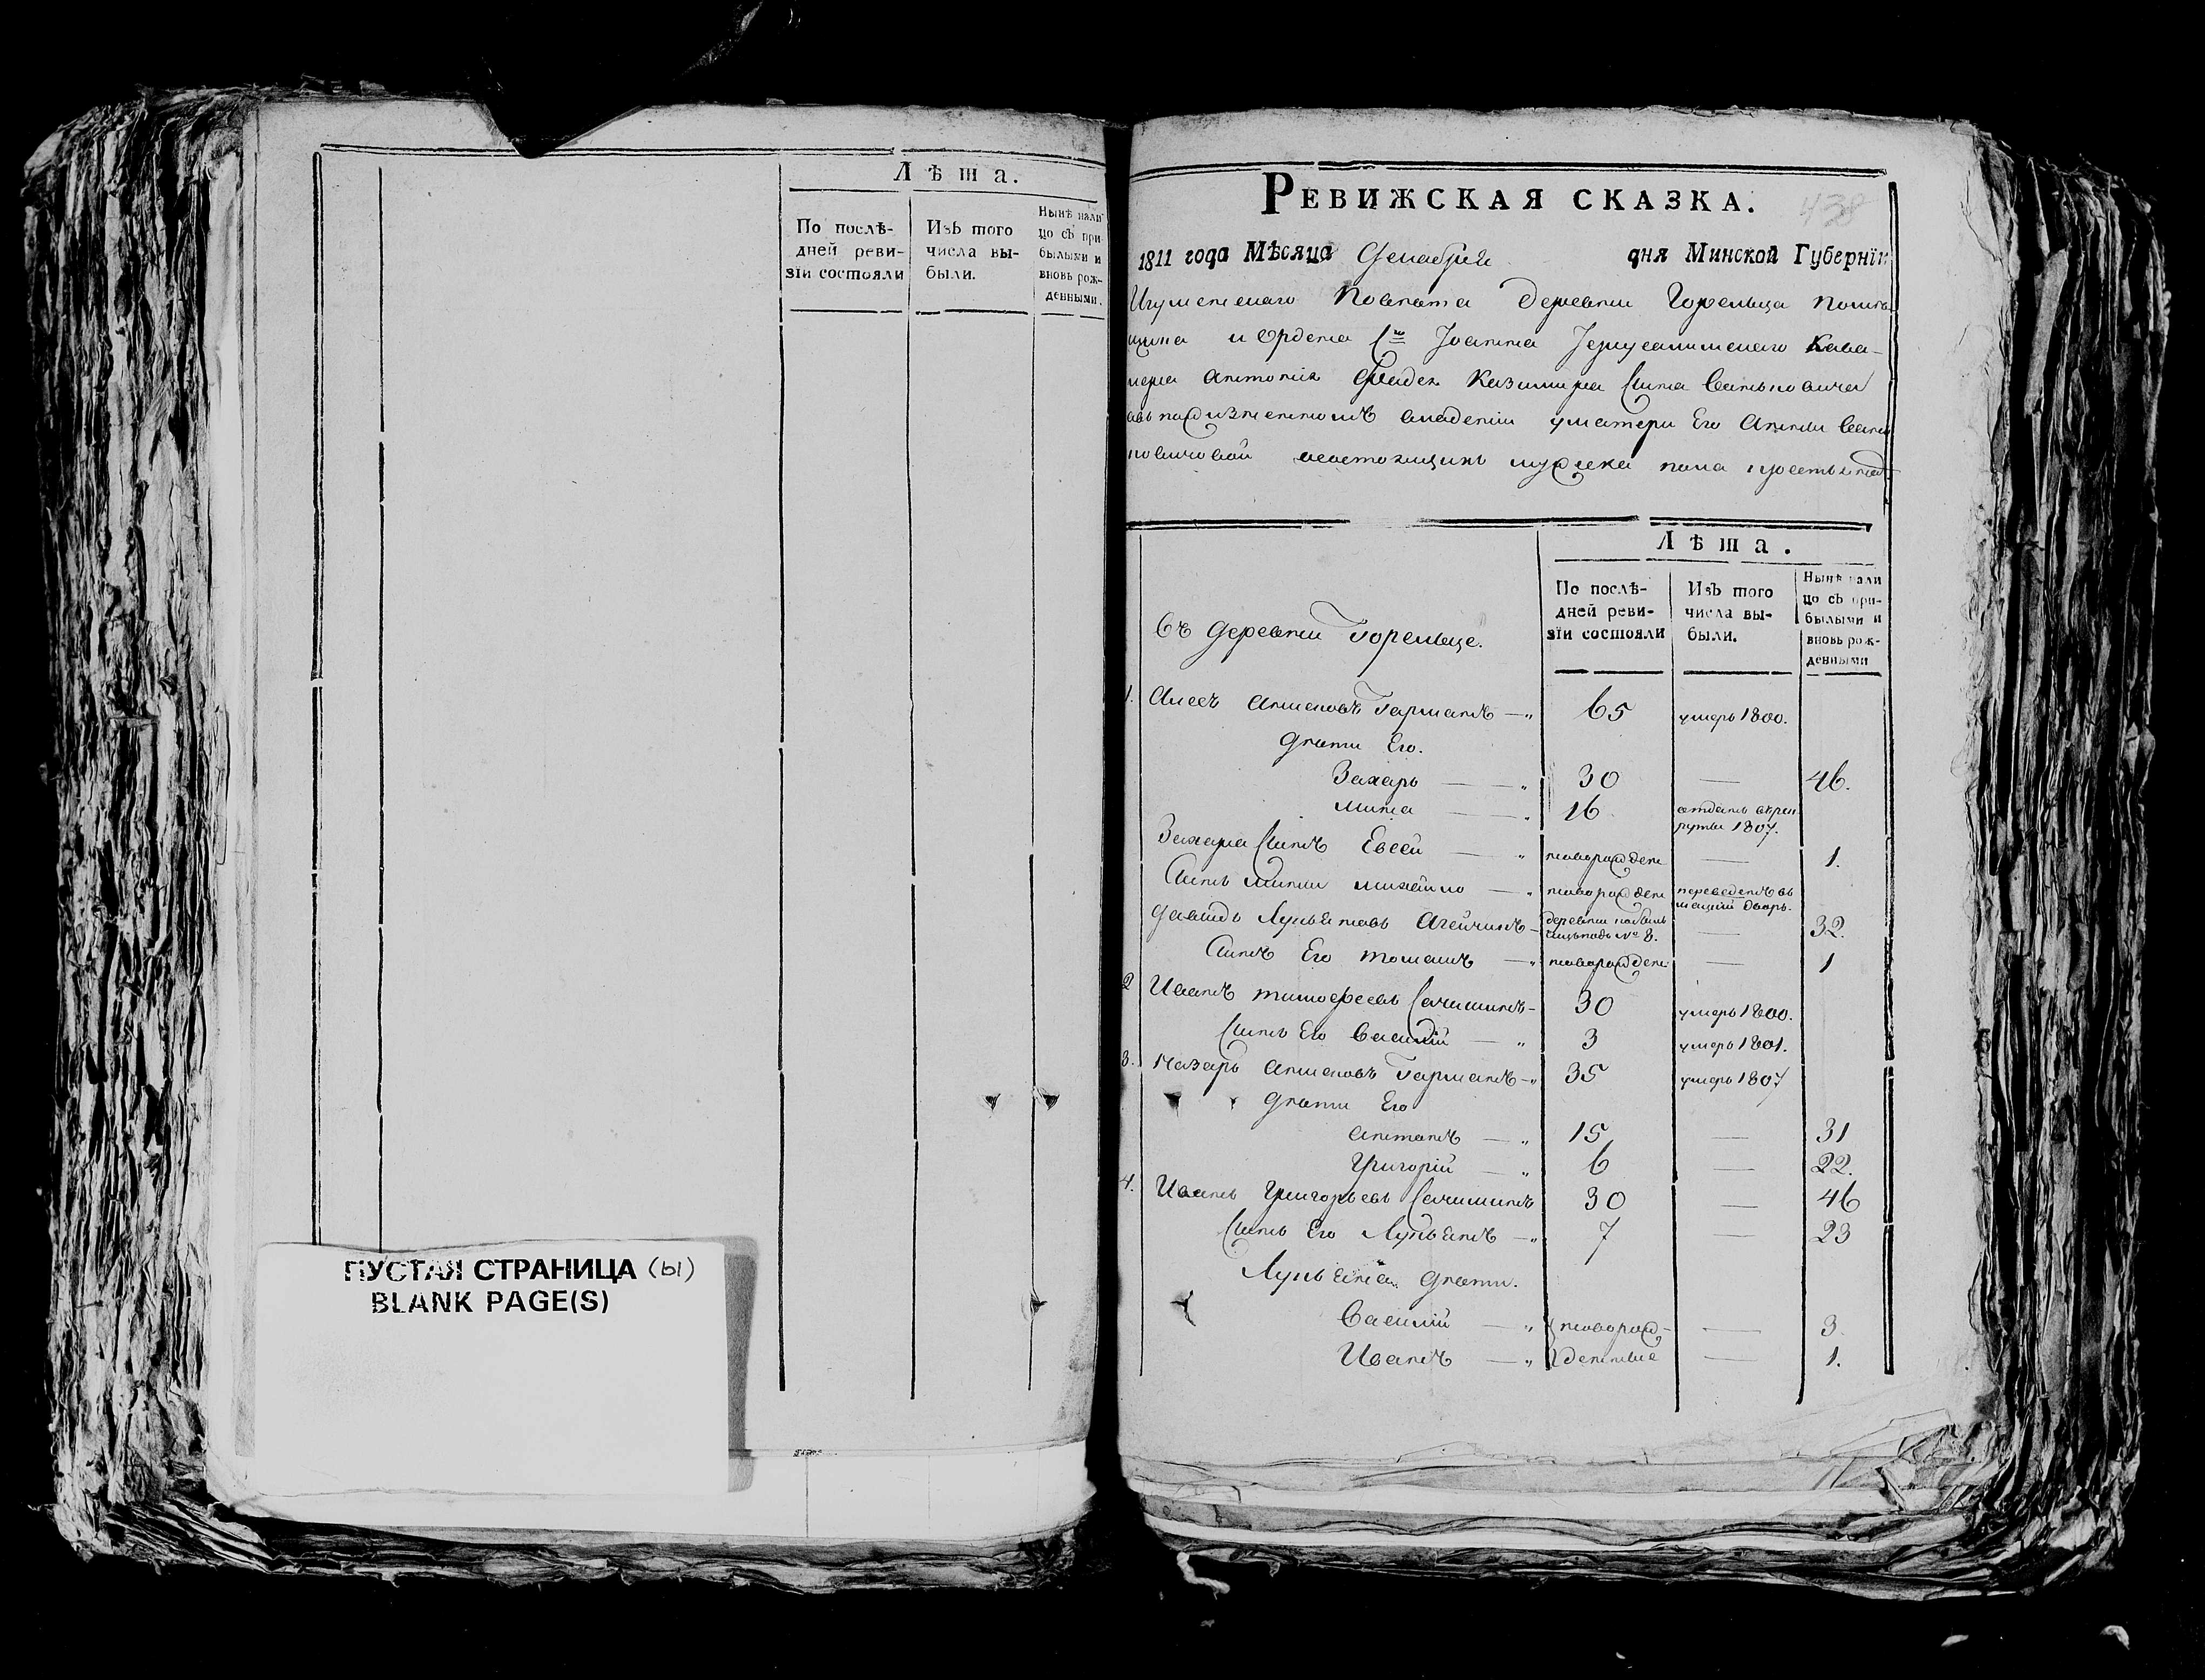 Лѣта.
По послѣ-
дней реви-
зїи состояли
Изъ того
числа вы-
были.
Нынѣ нали
цо съ при-
былыми и
вновь рож-
денными.
ПУСТАЯ СТРАНИЦА (Ы)
BLANK PAGE(S)
РЕВИЖСКАЯ СКАЗКА.
438
1811 года Мѣсяца Декабря дня Минской Губернїи
Игуменскаго Повѣта деревни Горельца помѣ
щика и Ордена Іоанна Іерусалимскаго Кава-
лера Антонія Казимира сына
владеніи у матери Его Анны
мужеска пола крестьянах
Лѣта.
По послѣ-
дней реви-
зїи состояли
Изъ того
числа вы-
были.
Нынѣ нали
цо съ при-
былыми и
вновь рож-
денными
Въ деревни Горельце.
1. Германъ 65 умеръ 1800.
дѣти Его.
Захаръ 30 — 46.
Мина 16 отданъ врек
руты 1807.
Захара сынъ Евсей новорожден — 1.
Сынъ Мины Михайло новорожден переведенъ въ
дворъ.
Давидъ Лукьяновъ деревни
подъ № 8. — 32.
Сынъ Его Томашъ новорожден — 1
2 Иванъ Тимофеевъ 30 умеръ 1800.
Сынъ Его Василій 3 умеръ 1801.
3. Назаръ Германъ 35 умеръ 1807
дѣти Его
Антонъ 15 — 31
Григорій 6 — 22.
4. Иванъ Григорьевъ 30 — 46
Сынъ Его Лукьянъ 7 — 23
Лукьяна дѣти.
Василій новорож- — 3.
Иванъ денные — 1.